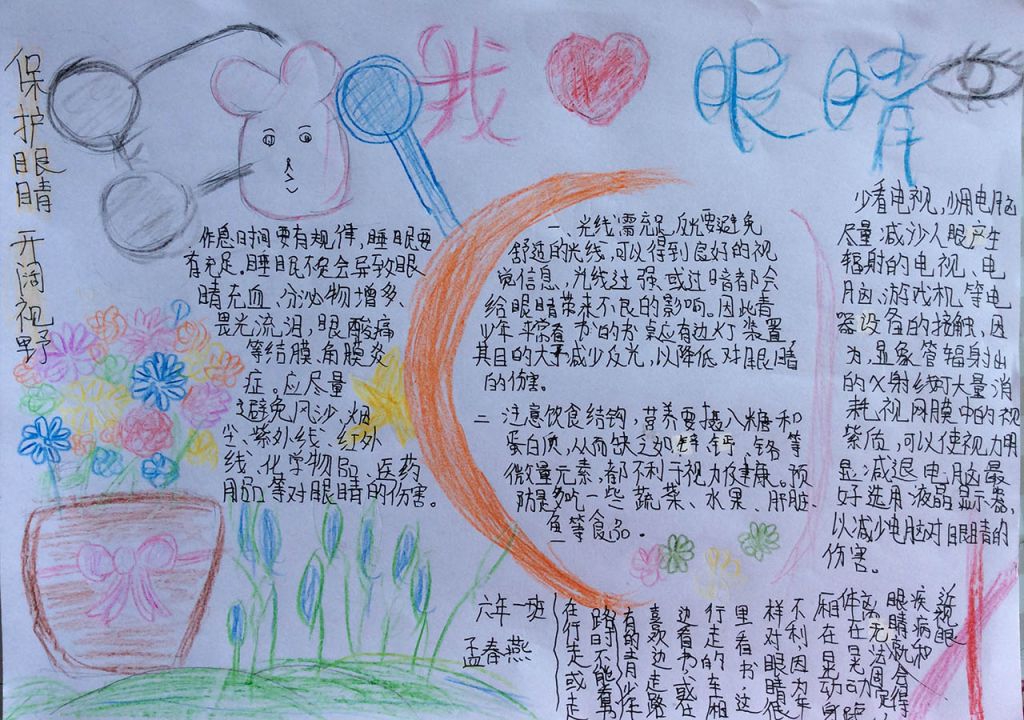 我 眼睛
保护眼睛 开阔视野
作息时间要有规律，睡眠要
有充足。睡眠不足会导致眼
睛充血、分泌物增多、
畏光流泪，眼酸痛
等结膜、角膜炎
症。应尽量
避免风沙、烟
尘、紫外线、红外
线、化学物品、医药
用品等对眼睛的伤害。
一、光线需充足，反光要避免
舒适的光线，可以得到良好的视
觉信息，光线过强或过暗都会
给眼睛带来不良的影响。因此青
少年平常看书的书桌应有边灯装置，
其目的大予减少反光，以降低对眼睛
的伤害。
二 注意饮食结钩，营养要摄入糖和
蛋白质，从而缺乏如锌、钙、铬等
微量元素，都不利于视力及健康。预
防是多吃一些蔬菜、水果、肝脏、
鱼等食品.
少看电视，少用电脑
尽量减少人眼产生
辐射的电视、电
脑、游戏机等电
器设备的接触，因
为，显象管辐射出
的X射线可大量消
耗视网膜中的视
紫质，可以使视力明
显减退电脑最
好选用液晶显示器，
以减少电脑对眼睛的
伤害。
六年一班
孟春燕
近视眼
疾病和
眼睛
不利，因为车
样对眼睛很
里看书，这
行走的车厢
边看书，或在
喜欢边走路
有的青少年
路时不能看书
在行走或走